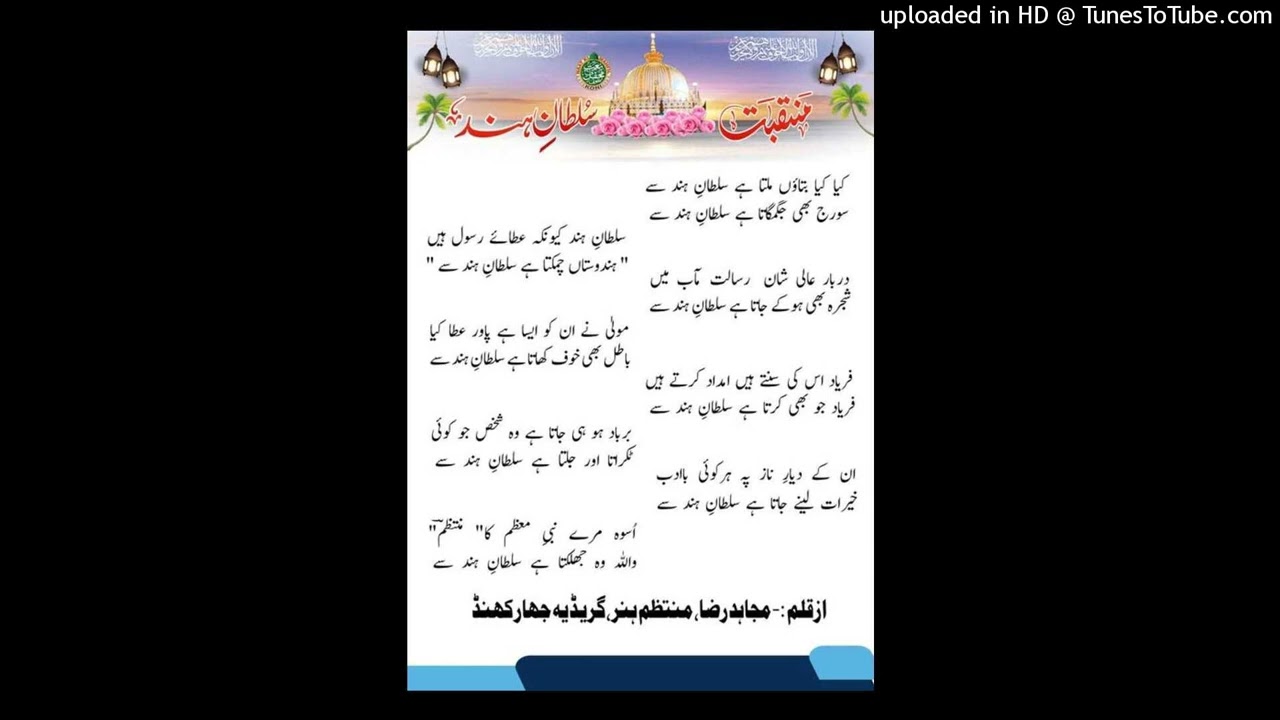 uploaded in HD @ TunesToTube.com
منقبت سُلطانِ ہند
کیا کیا بتاؤں ملتا ہے سلطانِ ہند سے
سورج بھی جگمگاتا ہے سلطانِ ہند سے
سلطانِ ہند کیونکہ عطائے رسول ہیں
"ہندوستاں چمکتا ہے سلطانِ ہند سے"
دربار عالی شان رسالت مآب میں
شجرہ بھی ہوکے جاتا ہے سلطانِ ہند سے
مولیٰ نے ان کو ایسا ہے پاور عطا کیا
باطل بھی خوف کھاتا ہے سلطانِ ہند سے
فریاد اس کی سنتے ہیں امداد کرتے ہیں
فریاد جو بھی کرتا ہے سلطانِ ہند سے
برباد ہو ہی جاتا ہے وہ شخص جو کوئی
ٹکراتا اور جلتا ہے سلطانِ ہند سے
ان کے دیارِ ناز پہ ہر کوئی باادب
خیرات لینے جاتا ہے سلطانِ ہند سے
اُسوہ مرے نبیِ معظم کا "منتظم"
واللہ وہ جھلکتا ہے سلطانِ ہند سے
ازقلم :- مجاہد رضا، منتظم ہنر، گریڈیہ جھارکھنڈ